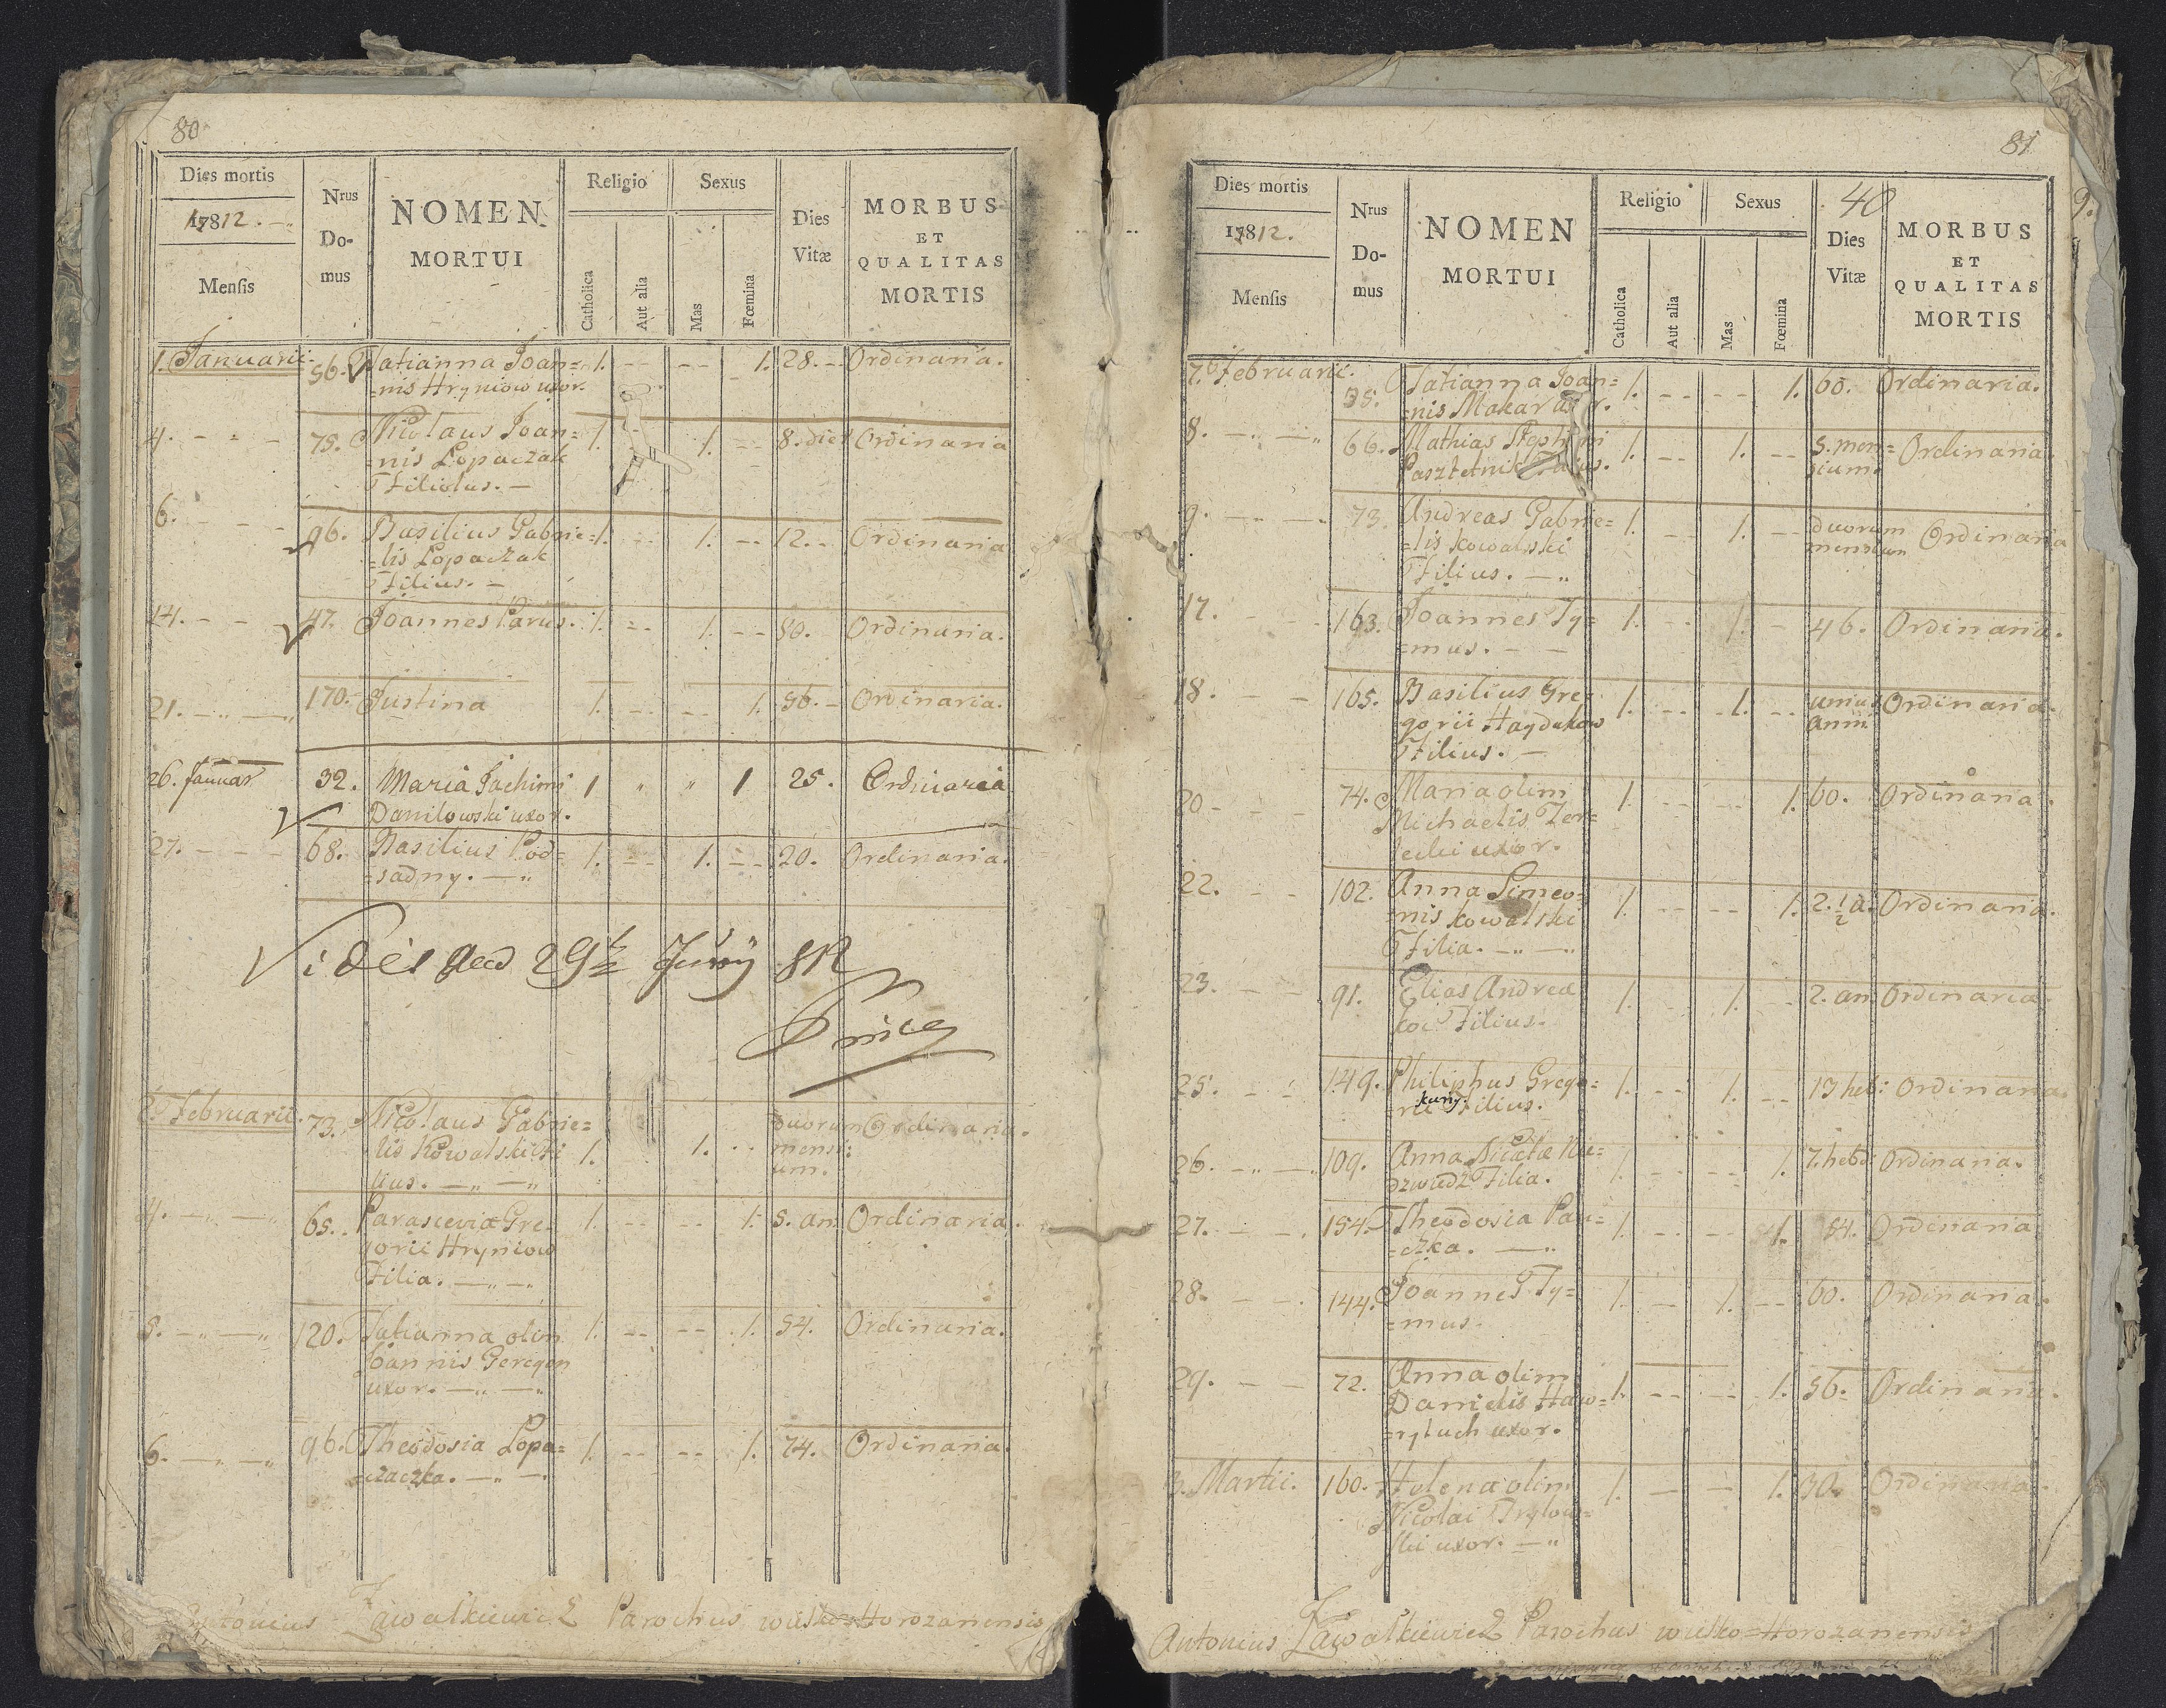 80
Dies mortis
1812.
Mensis
Nrus
Do-
mus
NOMEN
MORTUI
Religio
Catholica
Aut alia
Sexus
Mas
Fœmina
Dies
Vitæ
MORBUS
ET
QUALITAS
MORTIS
1. Januarii. 56. Tatianna Joan= 1. -- -- 1. 28. - Ordinaria.
=nis Hryniow uxor.
4. - - - 75. Nicolaus Joan= 1. - 1. -- 8. dies Ordinaria
=nis Lopaczak
Filiolus. -
6. - - - 96. Basilius Gabrie= 1. -- 1. -- 12. - Ordinaria
=lis Lopaczak
Filius. -
14. - - - 47. Joannes Parus. 1. -- 1. -- 80. Ordinaria.
21. - - 170. Justina 1. -- -- 1. 56. - Ordinaria.
26. Januar 32. Maria Jachimi 1 " " 1 25. Ordinaria
Danilowski uxor.
27. - - - 68. Basilius Pod= 1. -- 1. -- 20. Ordinaria.
=sadny. -
Vidi 29 812
2. Februarii. 73. Nicolaus Gabrie= duorum Ordinaria.
lis Kowalski Fi 1. 1. -- mensi:
lius. - um.
4. - - 65. Parascevia Gre= 1. -- -- 1. 5. an. Ordinaria.
gorii Hryniow
Filia. - -
5. - - 120. Tatianna olim 1. -- -- 1. 54. Ordinaria.
Joannis Geregon
uxor. - -
6. - - 96. Theodosia Lopa= 1. -- -- 1. 74. Ordinaria.
=czaczka. - -
Antonius Zawalkiewicz Parochus wielko=Horozanensis
81
Dies mortis
1812.
Mensis
Nrus
Do-
mus
NOMEN
MORTUI
Religio
Catholica
Aut alia
Sexus
Mas
Fœmina
40
Dies
Vitæ
MORBUS
ET
QUALITAS
MORTIS
7. Februarii. 35. Tatianna Joan= 1. -- -- 1. 60. Ordinaria.
=nis Makar
8. - - 66. Mathias Stephani 1. -- 1. -- 5. men= Ordinaria.
Pasztetnik Filius. sium.
9. - - 73. Andreas Gabrie= 1. -- 1. -- duorum Ordinaria
=lis Kowalski mensium
Filius. -
17. - - 163. Joannes Ty= 1. -- 1. - 46. Ordinaria.
=mus. - -
18. - - 165. Basilius Gre= 1. -- 1. -- unius Ordinaria.
gorii Haydukow anni.
Filius. -
20 - - 74. Maria olim 1. -- -- 1. 60. Ordinaria.
Michaelis
uxor.
22. - - 102. Anna Simeo= 1. -- -- 1. 2. 1/2 a. Ordinaria.
=nis Kowalski
Filia. - -
23. - - 91. Elias Andreæ 1. - 1. - 2. an. Ordinaria.
Koc Filius.
25. - - 149. Philiphus Grego= 1. -- 1. -- 13 heb: Ordinaria.
rii Kuny. Filius.
26. - - 109. Anna Nicetæ Nie= 1. -- -- 1. 7. hebd: Ordinaria.
dzwiedz Filia.
27. - - 154. Theodosia Pau= 1. -- -- 1. 54. Ordinaria.
=czka. -
28. - - 144. Joannes Ty= 1. - 1. -- 60. Ordinaria.
=mus.
29. - - 72. Anna olim 1. -- -- 1. 56. Ordinaria.
Danielis Haw=
=ryluch uxor.
3. Martii. 160. Helena olim 1. - - 1. 30. Ordinaria.
Nicolai Trylow=
ski uxor. -
Antonius Zawalkiewicz Parochus wielko=Horozanensis
9.